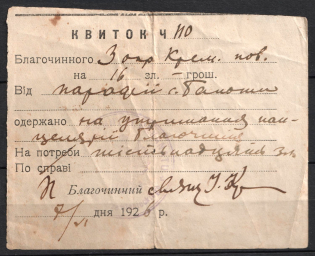 КВИТОК Ч 110
Благочинного 3 окр Крем. пов.
на 16 зл. – грош.
Від парафії с.
одержано на утримання кан-
целярії благочинія
На потреби шістьнадцять зл
По справі
П Благочинний свящ І.
дня 192 р.